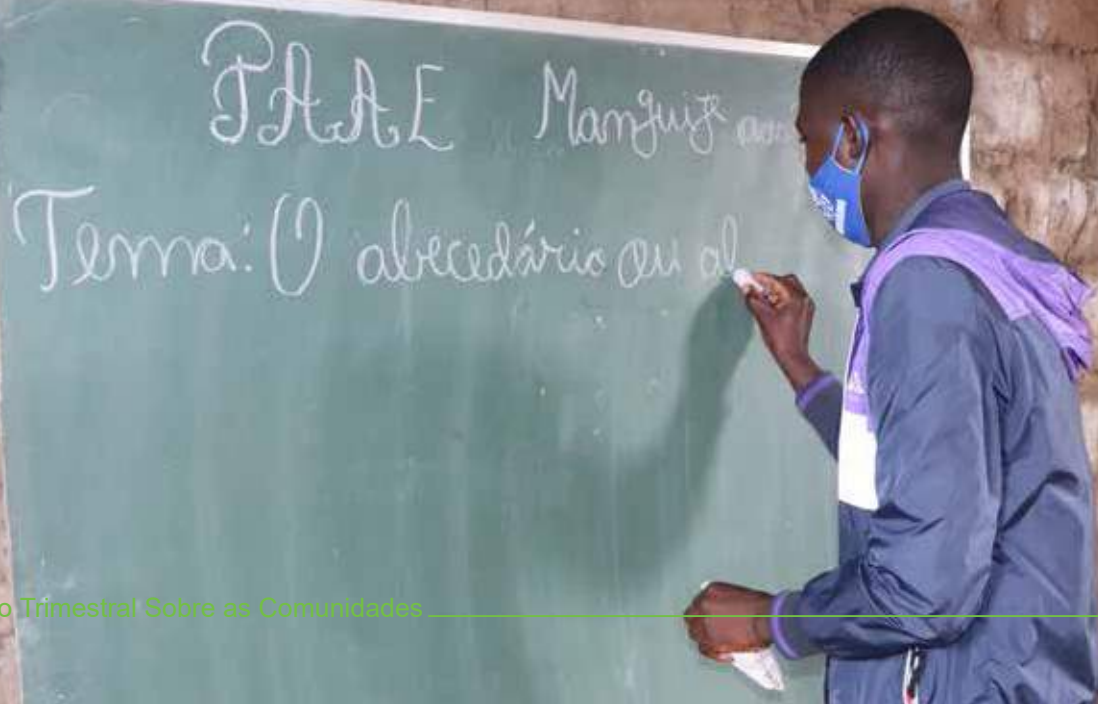 PAAE Manguije
Tema: O abecedário ou al
o Trimestral Sobre as Comunidades